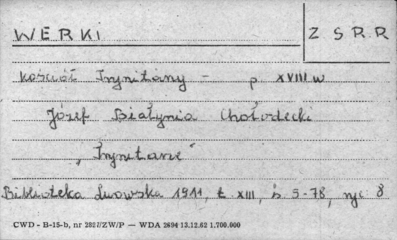 WERKI
Z S R R
kościół Trynitarzy - p XVIII w
Józef Białynia Chołodecki
„Trynitarze"
Biblioteka Lwowska 1911, t. XIII, s. 5-78, ryc. 8
CWD - B-15-b, nr 282 I/ZW/P — WDA 2694 13.12.62 1.700.000